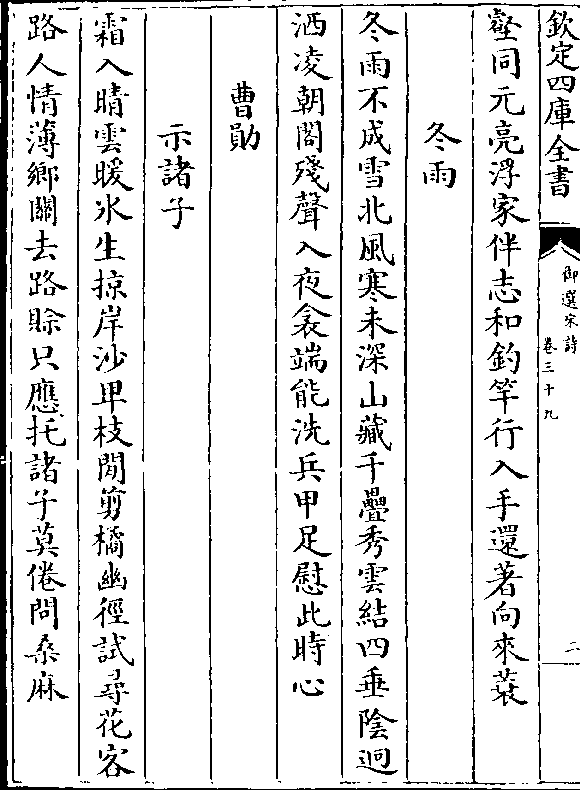 欽定四庫全書
御選宋詩
卷三十九
二
壑同元亮浮家伴志和釣竿行入手還著向來蓑
冬雨
冬雨不成雪北風寒未深山藏千疊秀雲結四垂陰迥
洒凌朝閣殘聲入夜衾端能洗兵甲足慰此時心
曹勛
示諸子
霜入晴雲暖氷生掠岸沙卑枝閒剪橘幽徑試尋花客
路人情薄鄉關去路賒只應托諸子莫倦問桑麻